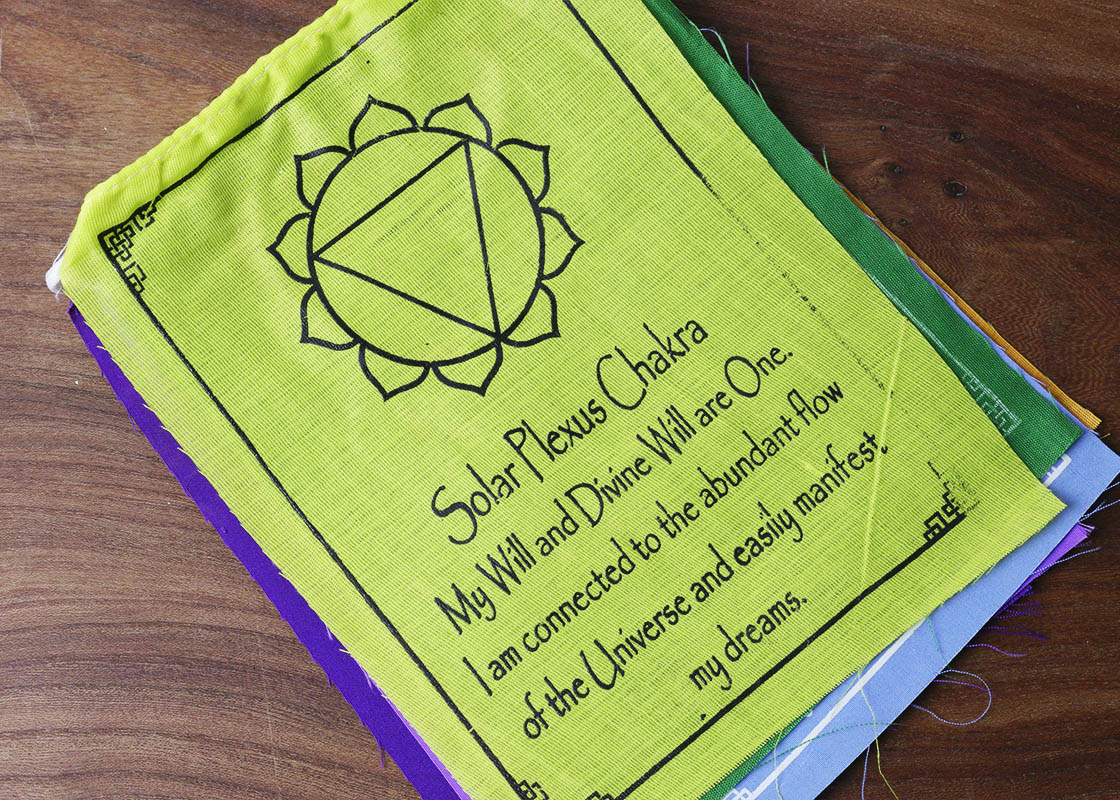 Solar Plexus Chakra
My Will and Divine Will are One.
I am connected to the abundant flow
of the Universe and easily manifest
my dreams.